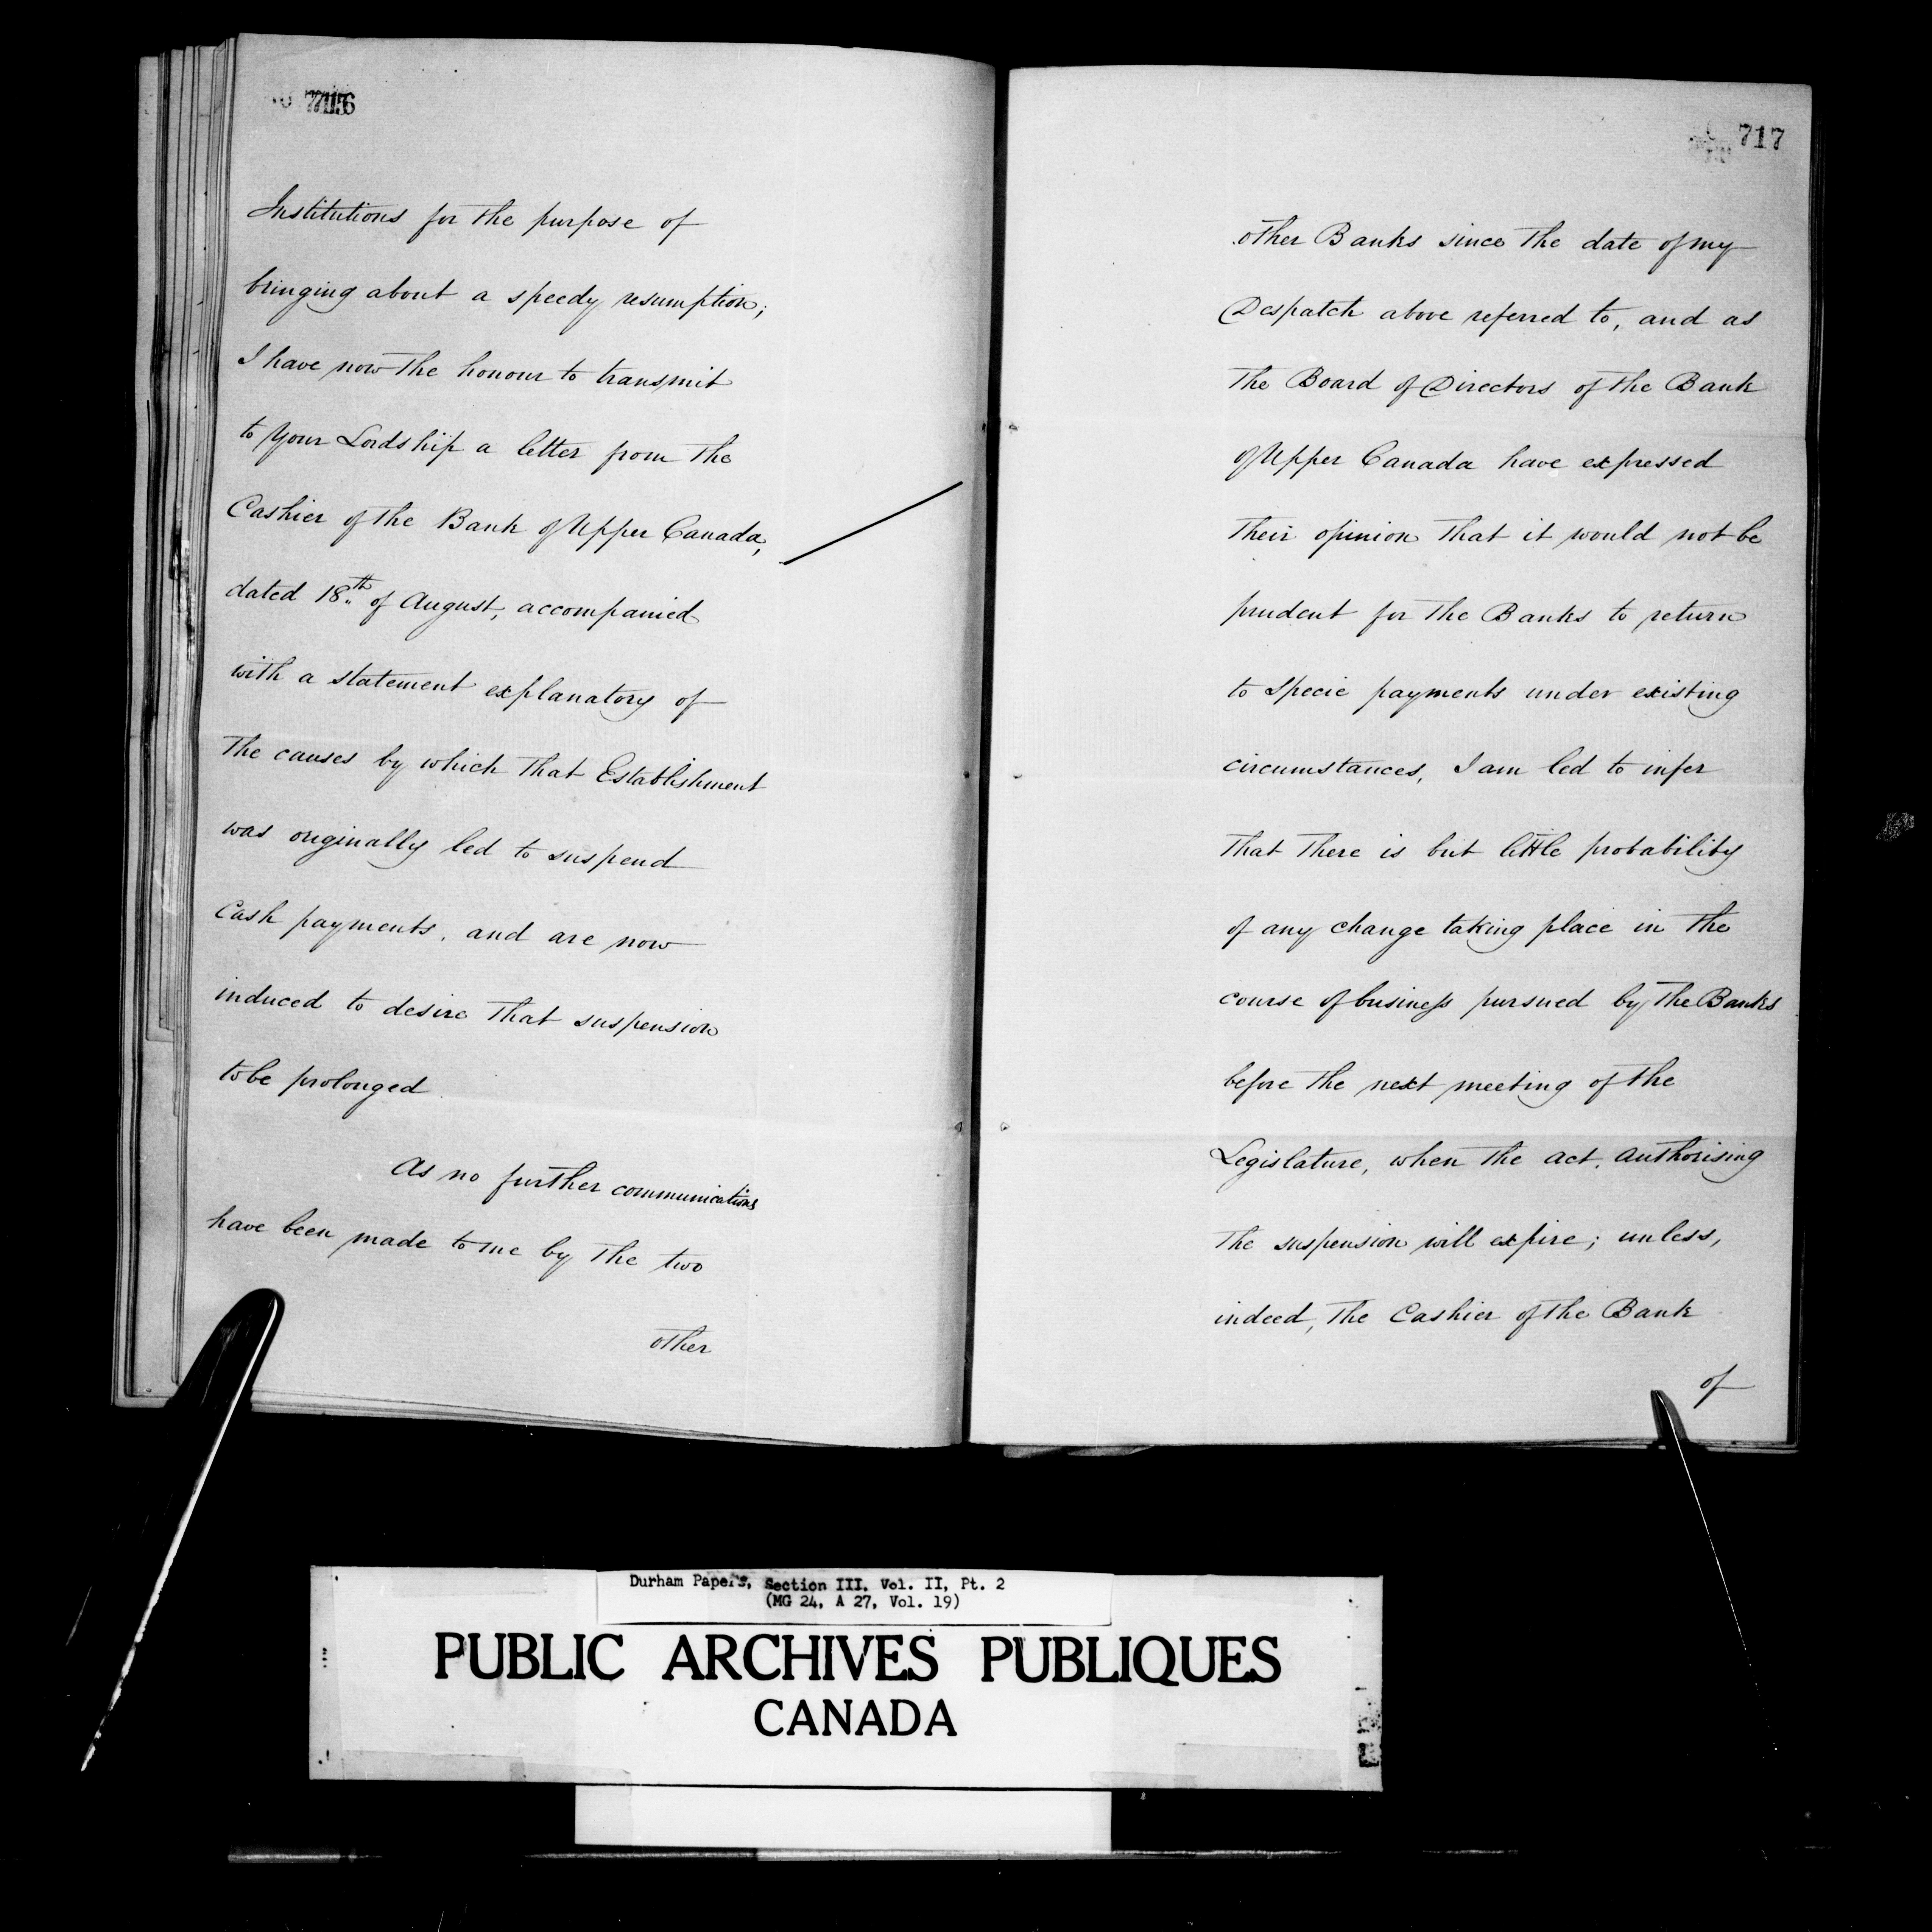 716
Institutions for the purpose of
bringing about a speedy resumption;
I have now the honour to transmit
to Your Lordship a letter from the
Cashier of the Bank of Upper Canada,
dated 18th of August, accompanied
with a statement explanatory of
the causes by which that Establishment
was originally led to suspend
Cash payments, and are now
induced to desire that suspension
to be prolonged.
As no further communications
have been made to me by the two
other
717
other Banks since the date of my
Despatch above referred to, and as
the Board of Directors of the Bank
of Upper Canada have expressed
their opinion that it would not be
prudent for the Banks to return
to specie payments under existing
circumstances, I am led to infer
that there is but little probability
of any change taking place in the
course of business pursued by the Banks
before the next meeting of the
Legislature, when the act, authorising
the suspension will expire; unless,
indeed, the Cashier of the Bank
of
Durham Papers, Section III, Vol. II, Pt. 2
(MG 24, A 27, Vol. 19)
PUBLIC ARCHIVES PUBLIQUES
CANADA